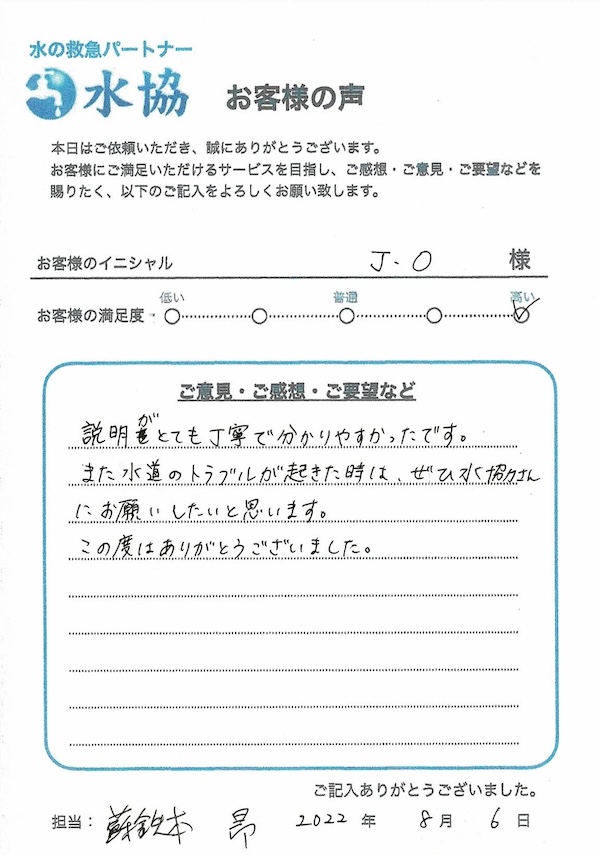 水の救急パートナー
水協 お客様の声
本日はご依頼いただき、誠にありがとうございます。
お客様にご満足いただけるサービスを目指し、ご感想・ご意見・ご要望などを
賜りたく、以下のご記入をよろしくお願い致します。
お客様のイニシャル J.O 様
低い 普通 高い
お客様の満足度
ご意見・ご感想・ご要望など
説明がとても丁寧で分かりやすかったです。
また水道のトラブルが起きた時は、ぜひ水協さん
にお願いしたいと思います。
この度はありがとうございました。
ご記入ありがとうございました。
担当： 蘇鉄本 昂 2022 年 8 月 6 日